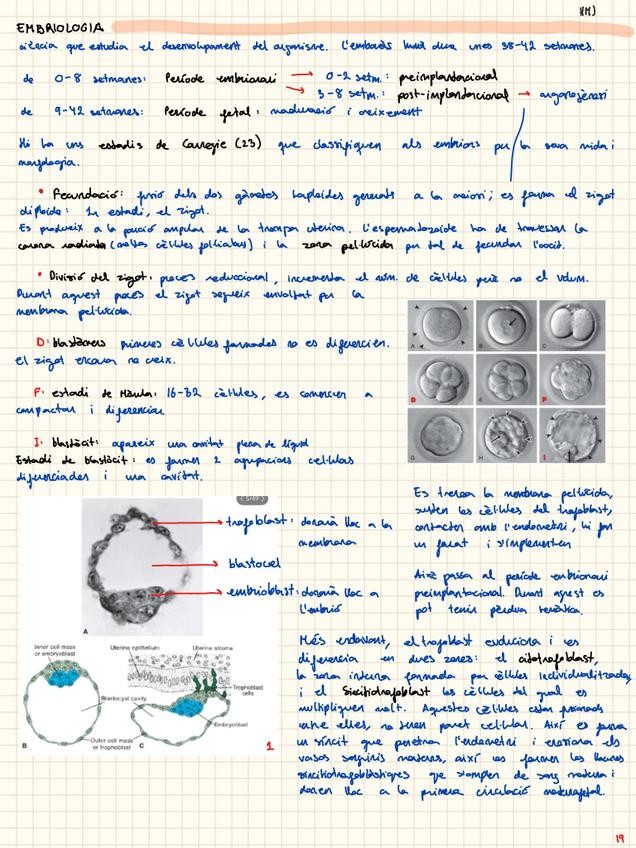 VM)
EMBRIOLOGIA
ciència que estudia el desenvolupament del organisme. L'embaràs humà dura unes 38-42 setmanes.
de 0-8 setmanes: Període embrionari → 0-2 setm.: preimplantacional
→ 3-8 setm.: post-implantacional → organogènesi
de 9-42 setmanes: Període fetal: maduració i creixement
Hi ha uns estadis de Carnegie (23) que classifiquen als embrions per la seva mida i
morfologia.
• Fecundació: fusió dels dos gàmetes haploides generats a la meiosi; es forma el zigot
diploide: 1r estadi, el zigot.
Es produeix a la porció ampular de la trompa uterina. L'espermatozoide ha de travessar la
corona radiada (moltes cèl·lules fol·liculars) i la zona pel·lúcida per tal de fecundar l'oòcit.
• Divisió del zigot: procés reduccional, incrementa el núm. de cèl·lules però no el volum.
Durant aquest procés el zigot segueix envoltat per la
membrana pel·lúcida.
D: blastòmers primeres cèl·lules formades no es diferencien.
El zigot encara no creix.
F: estadi de Mòrula: 16-32 cèl·lules, es comencen a
compactar i diferenciar
I: blastòcit: apareix una cavitat plena de líquid
Estadi de blastòcit: es formen 2 agrupacions cel·lulars
diferenciades i una cavitat.
A B C
D E F
G H I
(5/49)
trofoblast: donarà lloc a la
membrana
blastocel
embrioblast: donarà lloc a
l'embrió
A
Es trenca la membrana pel·lúcida,
surten les cèl·lules del trofoblast,
contacten amb l'endometri, hi fan
un forat i s'implanten
Això passa al període embrionari
preimplantacional. Durant aquest es
pot tenir pèrdua
Inner cell mass
or embryoblast
Uterine epithelium
Uterine stroma
Trophoblast
cells
Blastocyst cavity
Embryoblast
Outer cell mass
or trophoblast
B
C
1
Més endavant, el trofoblast evoluciona i es
diferencia en dues zones: el citotrofoblast,
la zona interna formada per cèl·lules individualitzades,
i el Sincitiotrofoblast les cèl·lules del qual es
multipliquen molt. Aquestes cèl·lules estan fusionades
entre elles, no tenen paret cel·lular. Així es forma
un sinciti que penetra l'endometri i erosiona els
vasos sanguinis materns, així es formen les llacunes
sincitiotrofoblàstiques que s'omplen de sang materna i
donen lloc a la primera circulació maternofetal.
19